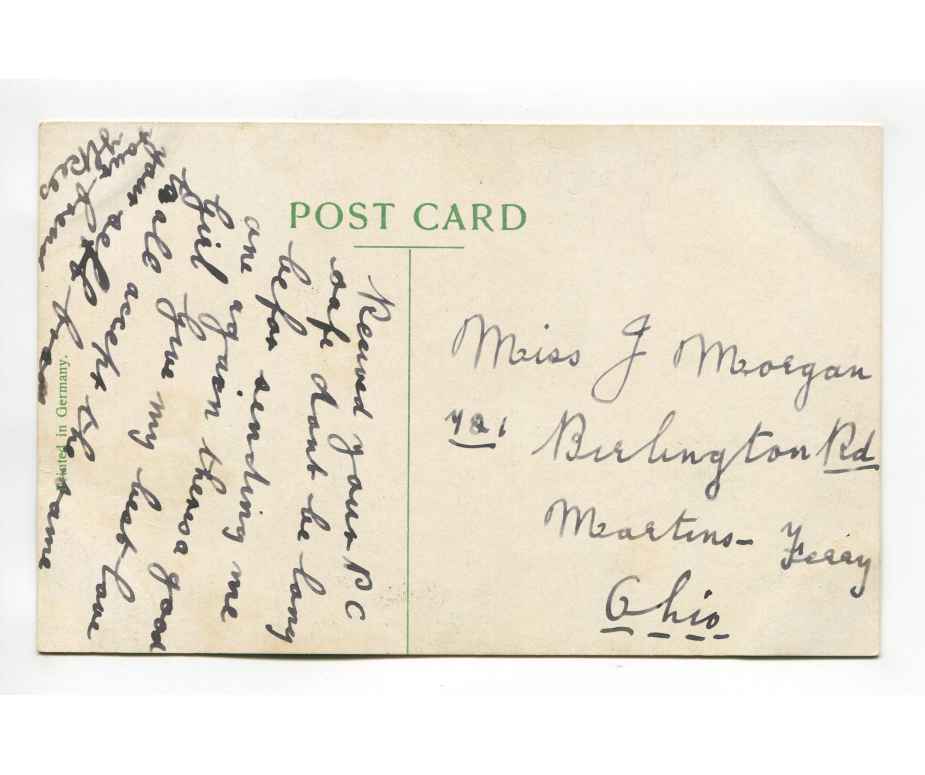 POST CARD
Recived your P C
safe dont be long
befor sending me
one again theres a good
Girl Give my best love
to all accept the same
your self
from
Miss J Morgan
Birlington Rd
Martins- Ferry
Ohio
Printed in Germany.